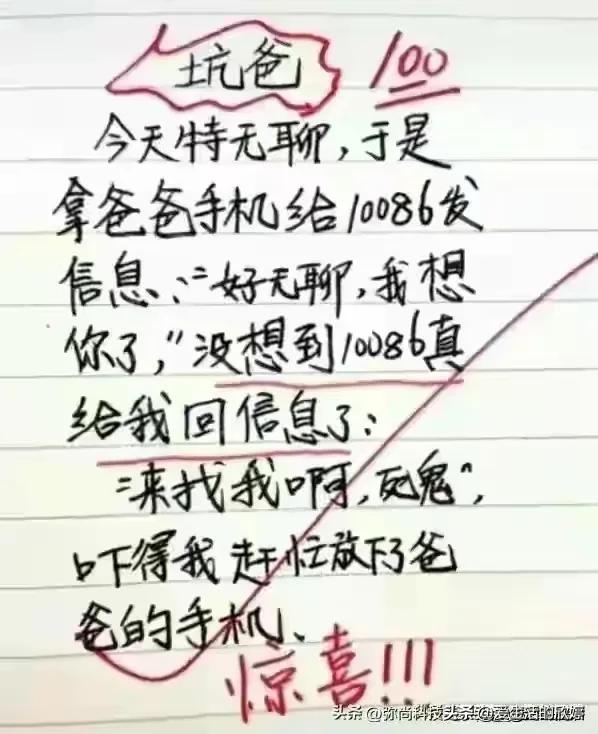 坑爸 100
今天特无聊,于是
拿爸爸手机给10086发
信息:“好无聊,我想
你了,”没想到10086真
给我回信息了:
“来找我啊,死鬼”,
吓得我赶忙放下了爸
爸的手机、
惊喜!!!
头条 @弥尚科技头条 @爱生活的欣嬉